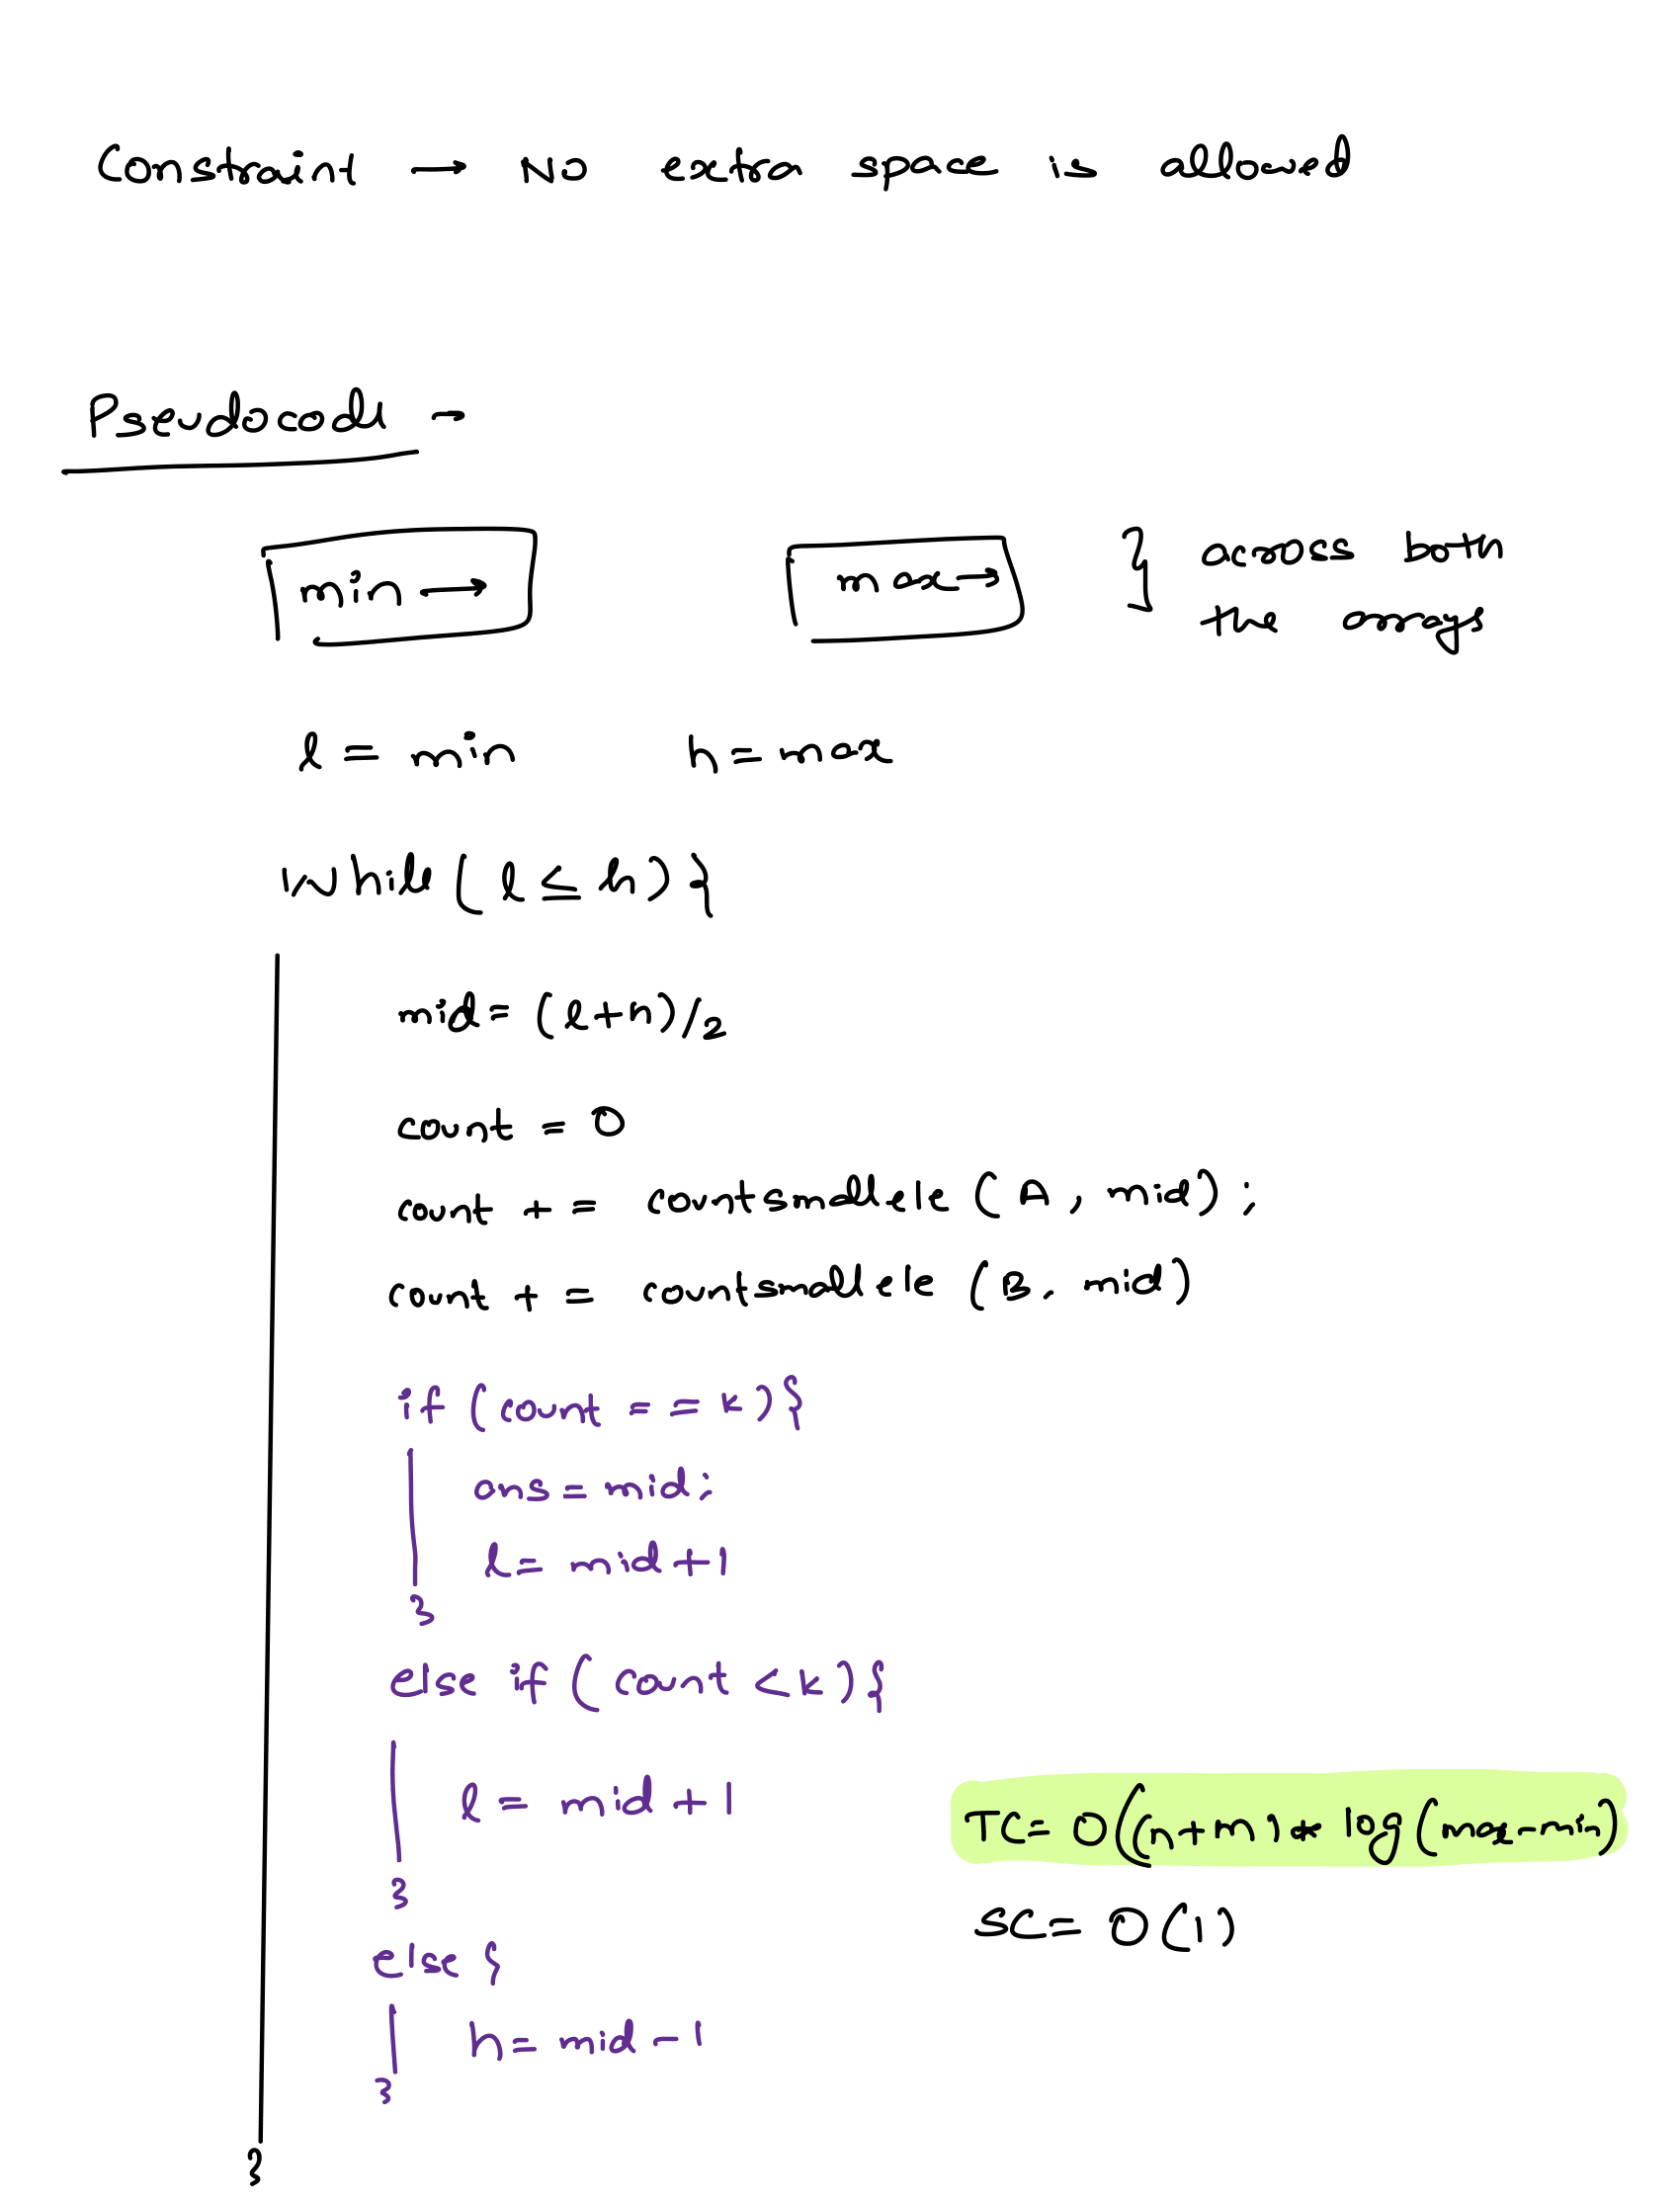 Constraint → No extra space is allowed
Pseudocode -
min → max → } across both
the arrays
l = min h = max
While ( l ≤ h ) {
mid = (l+h)/2
count = 0
count += countsmallele (A, mid);
count += countsmallele (B, mid)
if (count == k) {
ans = mid;
l = mid+1
}
else if ( count < k ) {
l = mid+1
}
else {
h = mid-1
}
}
TC = O((n+m) * log(max-min)
SC = O(1)